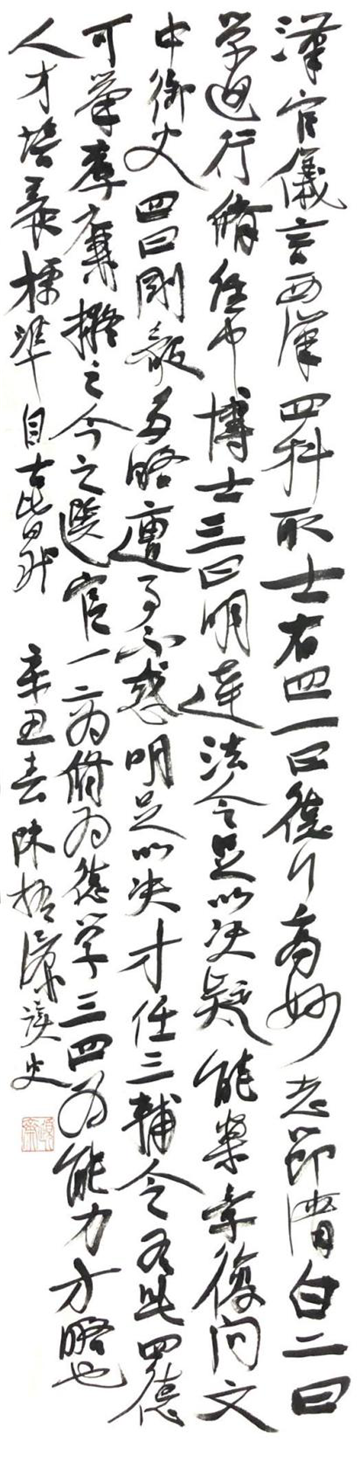 漢官儀言西漢四科取士右四一曰德行高妙志節清白二曰
學通行脩任中博士三曰明達法令足以決疑能案章復問文
中御史四曰剛毅多略遭事不惑明足以決才任三輔令有此四德
可舉孝廉擬之今之選官一二為脩為德學三四為能力才略也
人才培養標準自古皆然 辛丑春陳